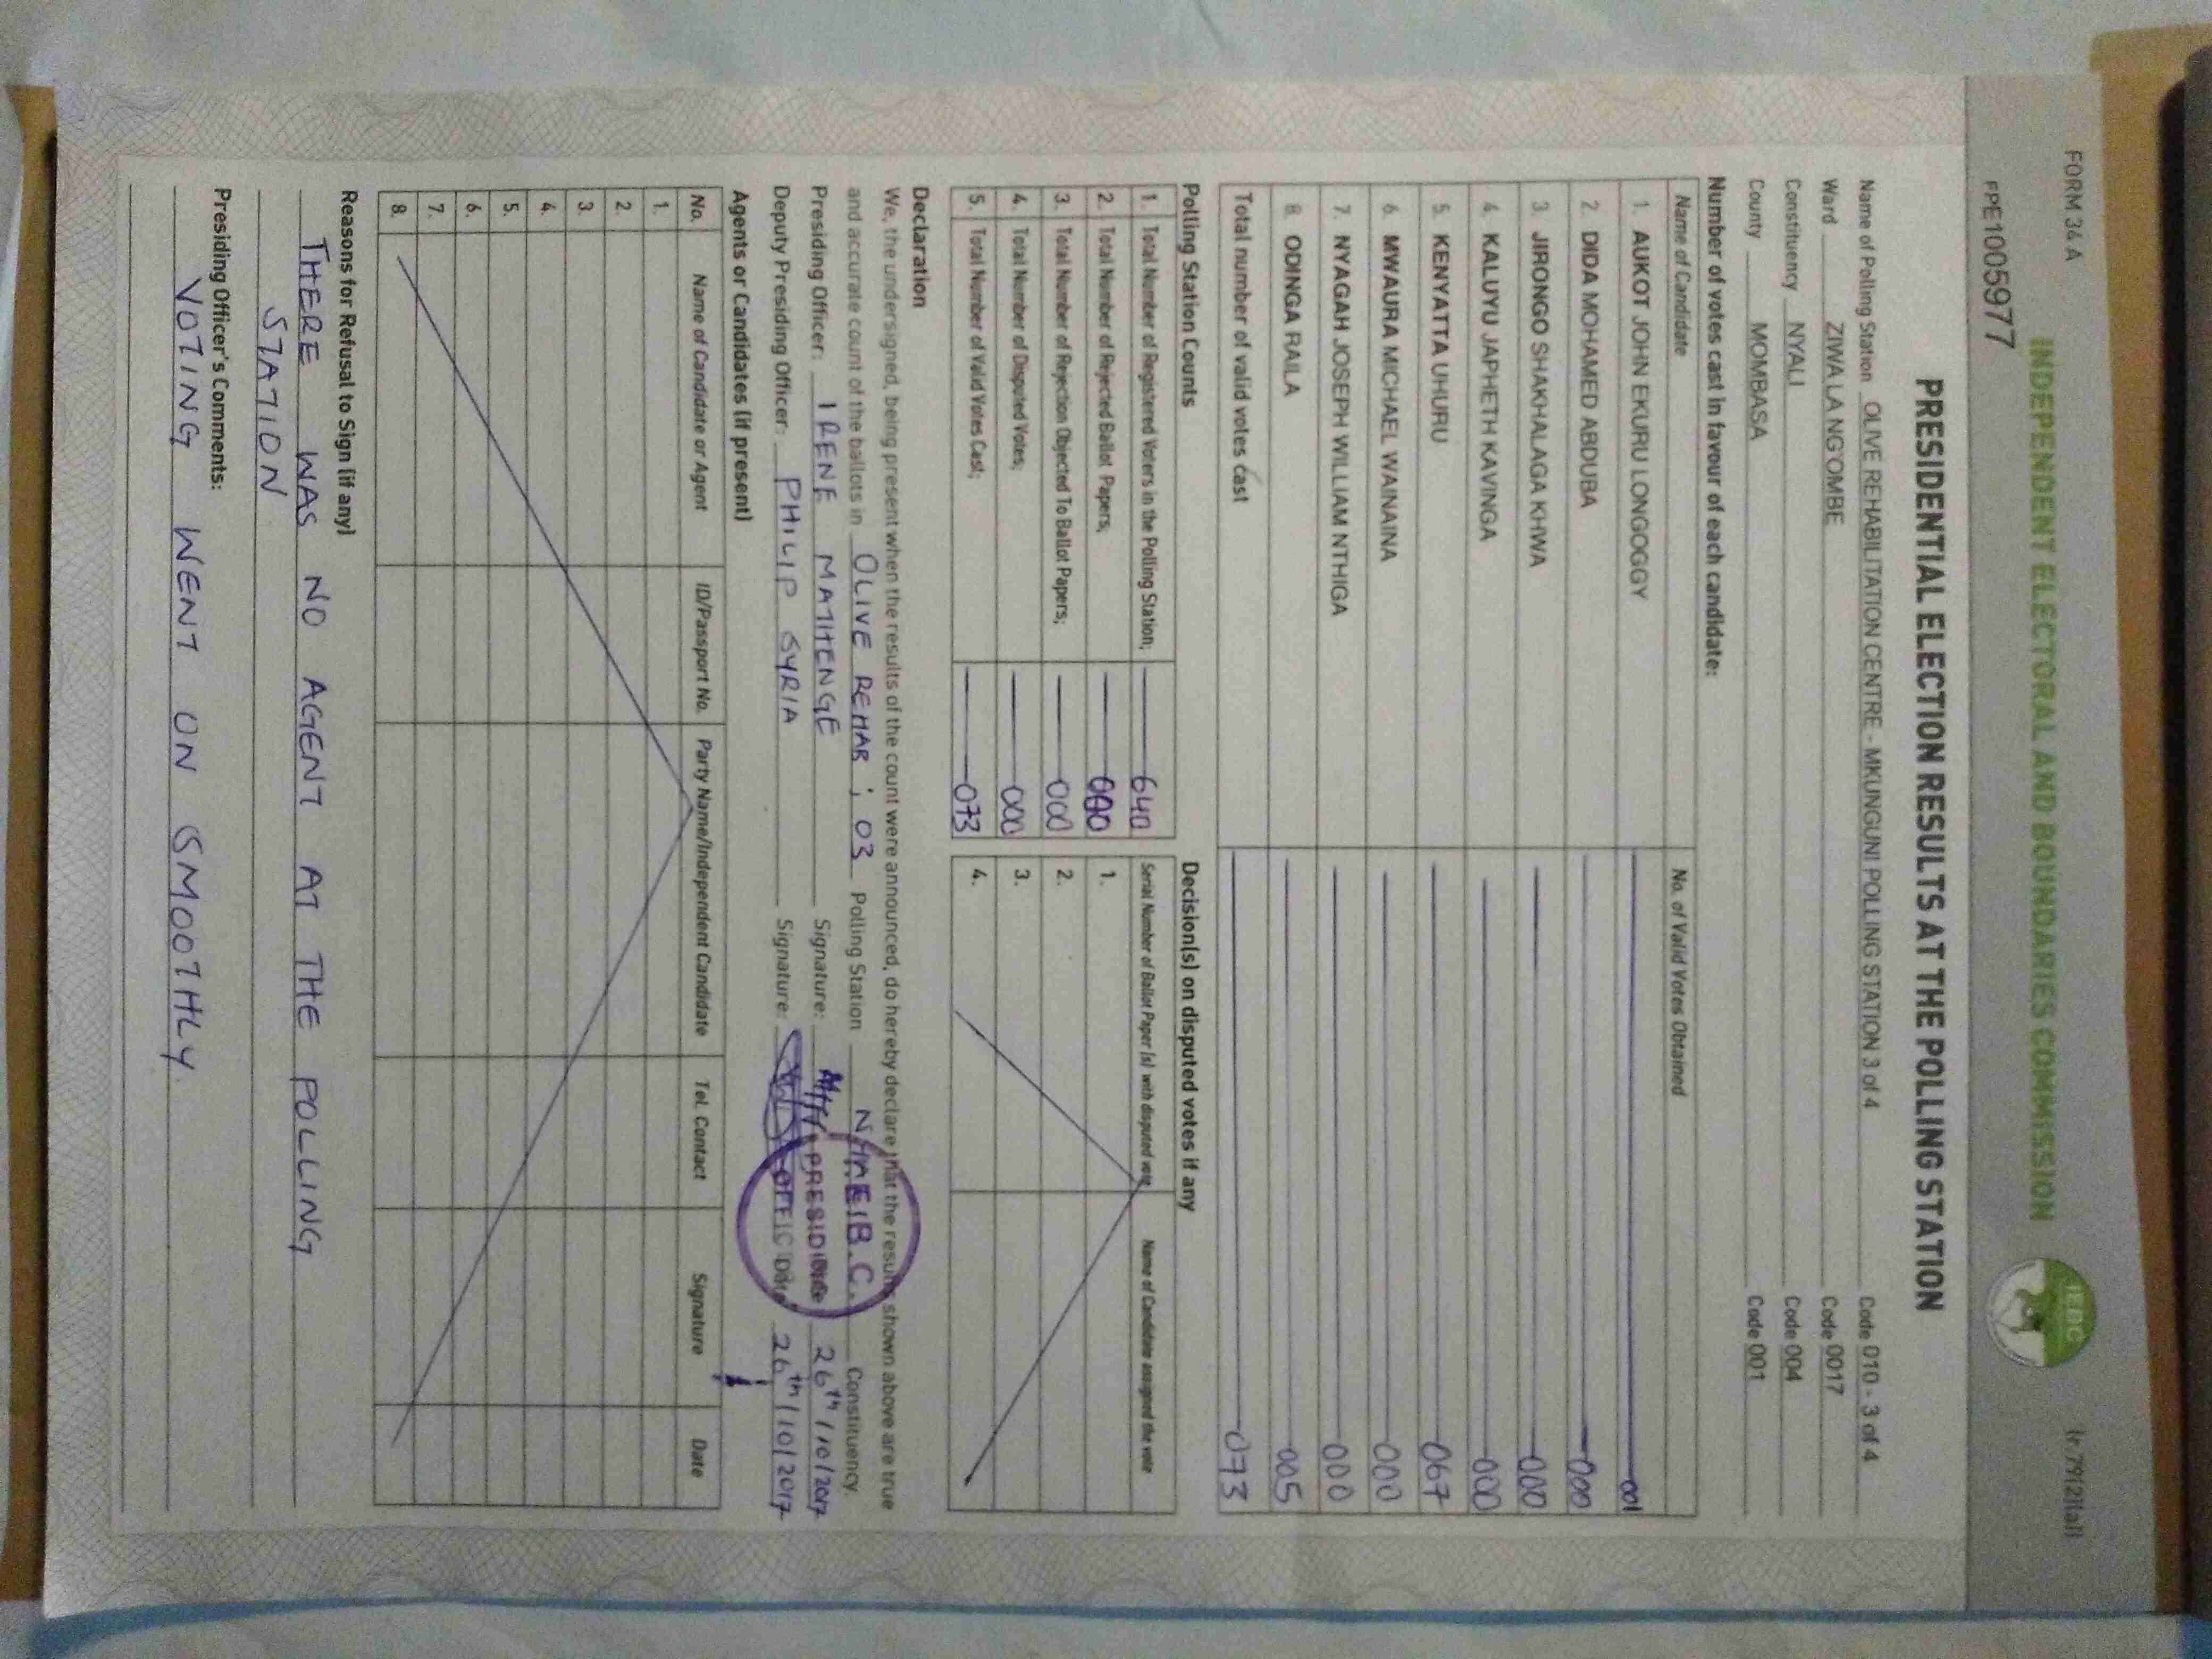 FORM 34 A
(r 79(2)(a))
INDEPENDENT ELECTORAL AND BOUNDARIES COMMISSION
IEBC
FPE1005977
PRESIDENTIAL ELECTION RESULTS AT THE POLLING STATION
Name of Polling Station OLIVE REHABILITATION CENTRE - MKUNGUNI POLLING STATION 3 of 4 Code 010 - 3 of 4
Ward ZIWA LA NG'OMBE Code 0017
Constituency NYALI Code 004
County MOMBASA Code 001
Number of votes cast in favour of each candidate:
Name of Candidate No. of Valid Votes Obtained
1. AUKOT JOHN EKURU LONGOGGY 001
2. DIDA MOHAMED ABDUBA 000
3. JIRONGO SHAKHALAGA KHWA 000
4. KALUYU JAPHETH KAVINGA 000
5. KENYATTA UHURU 067
6. MWAURA MICHAEL WAINAINA 000
7. NYAGAH JOSEPH WILLIAM NTHIGA 000
8. ODINGA RAILA 005
Total number of valid votes cast 073
Polling Station Counts Decision(s) on disputed votes if any
1. Total Number of Registered Voters in the Polling Station; 640 Serial Number of Ballot Paper (s) with disputed vote Name of Candidate assigned the vote
2. Total Number of Rejected Ballot Papers; 000 1.
3. Total Number of Rejection Objected To Ballot Papers; 000 2.
4. Total Number of Disputed Votes; 000 3.
5. Total Number of Valid Votes Cast; 073 4.
Declaration
We, the undersigned, being present when the results of the count were announced, do hereby declare that the results shown above are true
and accurate count of the ballots in OLIVE REHAB ; 03 Polling Station Constituency.
Presiding Officer: IRENE Signature: 26th/10/2017
Deputy Presiding Officer: PHILIP SYRIA Signature: Date 26th/10/2017
I.E.B.C.
PRESIDING
OFFICER
Agents or Candidates (if present)
No. Name of Candidate or Agent ID/Passport No. Party Name/Independent Candidate Tel. Contact Signature Date
1.
2.
3.
4.
5.
6.
7.
8.
Reasons for Refusal to Sign (if any)
THERE WAS NO AGENT AT THE POLLING
STATION.
Presiding Officer's Comments:
VOTING WENT ON SMOOTHLY.